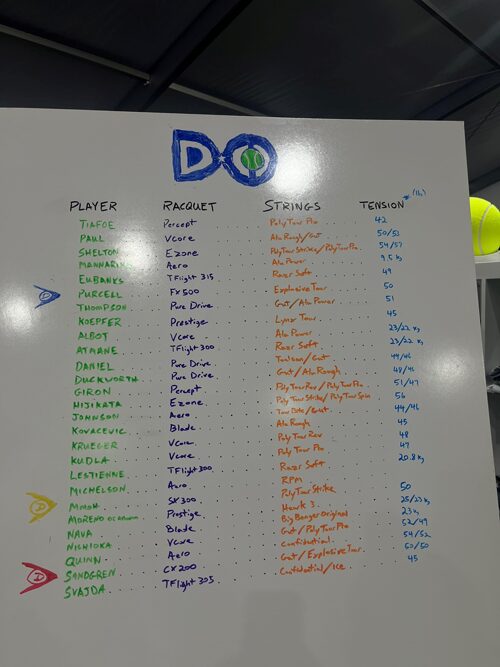 DO
PLAYER RACQUET STRINGS TENSION *(lb)
TIAFOE Percept PolyTour Pro 42
PAUL Vcore Alu Rough/Gut 50/53
SHELTON Ezone PolyTour Strike/PolyTour Pro 54/57
MANNARINO Aero Alu Power 9.5 kg
EUBANKS TFlight 315 Razor Soft 49
D PURCELL FX500 Explosive Tour 50
THOMPSON Pure Drive Gut/Alu Power 51
KOEPFER Prestige Lynx Tour 45
ALBOT Vcore Alu Power 23/22 kg
ATMANE TFlight 300 Razor Soft 23/22 kg
DANIEL Pure Drive /Gut 44/46
DUCKWORTH Pure Drive Gut/Alu Rough 48/46
GIRON Percept PolyTour Rev/PolyTour Pro 51/47
HIJIKATA Ezone PolyTour Strike/PolyTour Spin 56
JOHNSON Aero Tour Bite/Gut 44/46
KOVACEVIC Blade Alu Rough 45
KRUEGER Vcore PolyTour Rev 48
KUDLA Vcore PolyTour Pro 47
LESTIENNE TFlight 300 Razor Soft 20.8 kg
MICHELSON Aero RPM
D MMOH SX300 PolyTour Strike 50
MORENO DE ALBORAN Prestige Hawk 25/23 kg
NAVA Blade Big Banger Original 23 kg
NISHIOKA Vcore Gut/PolyTour Pro 52/49
QUINN Aero Confidential 54/52
D SANDGREN CX200 Gut/Explosive Tour 50/50
SVAJDA TFlight 305 Confidential/Ice 45